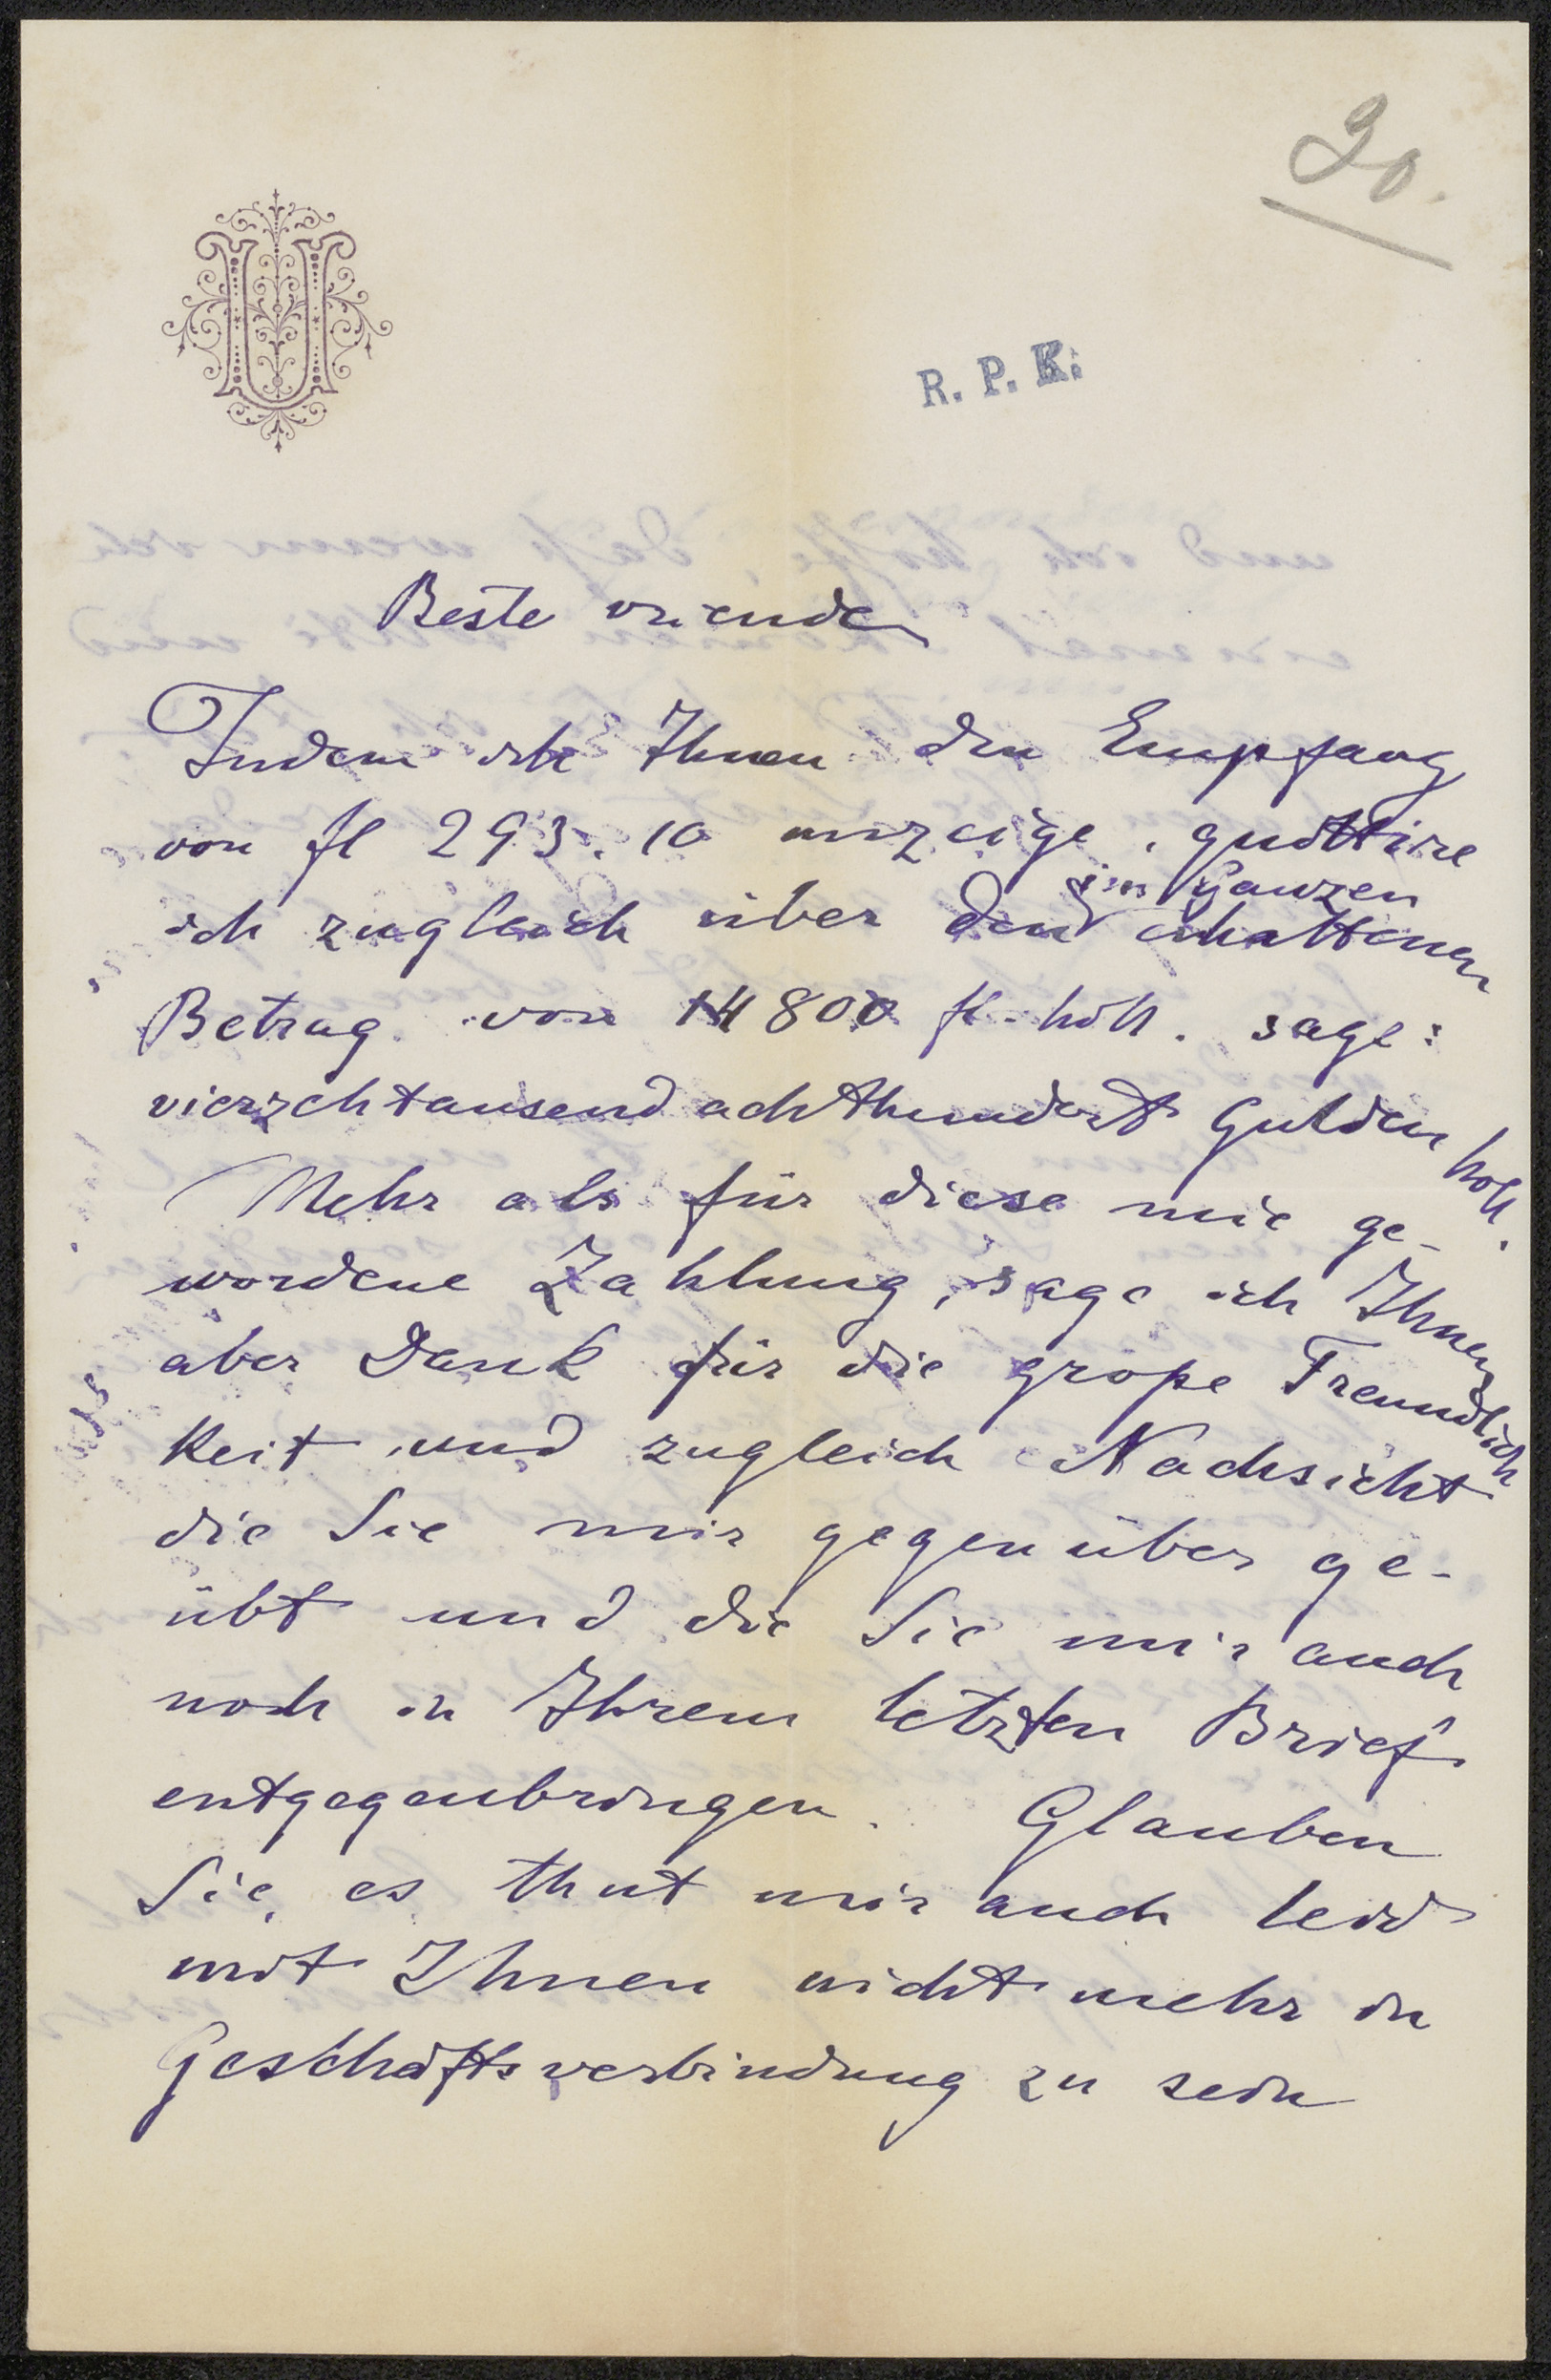 30.
U
R. P. K.
Beste vriende
Indem ich Ihnen den Empfang
von fl 293.10 anzeige, quittire
ich zugleich über den im Ganzen erhaltenen
Betrag von 14800 fl. holl. sage:
vierzehtausend achthundert Gulden holl.
Mehr als für diese mir ge-
wordene Zahlung, sage ich Ihnen
aber Dank für die große Freundlich
keit und zugleich Nachsicht
die Sie mir gegenüber ge-
übt und die Sie mir auch
noch in Ihrem letzten Brief
entgegenbringen. Glauben
Sie, es thut mir auch leid
mit Ihnen nicht mehr in
Geschäftsverbindung zu sein